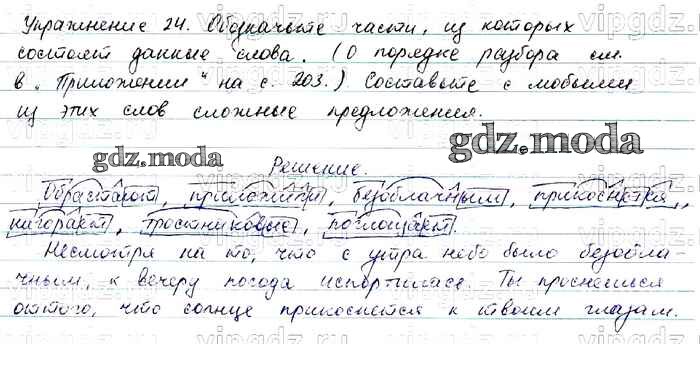 Упражнение 24. Обозначьте части, из которых
состоят данные слова. (О порядке разбора см.
в „Приложении" на с. 203.) Составьте с любыми
из этих слов сложные предложения.
gdz.moda
gdz.moda
Решение.
Обрастают, приложили, безоблачным, прикоснется,
нагорает, тростниковые, поглощает.
Несмотря на то, что с утра небо было безобла-
чным, к вечеру погода испортилась. Ты проснешься
оттого, что солнце прикоснется к твоим глазам.